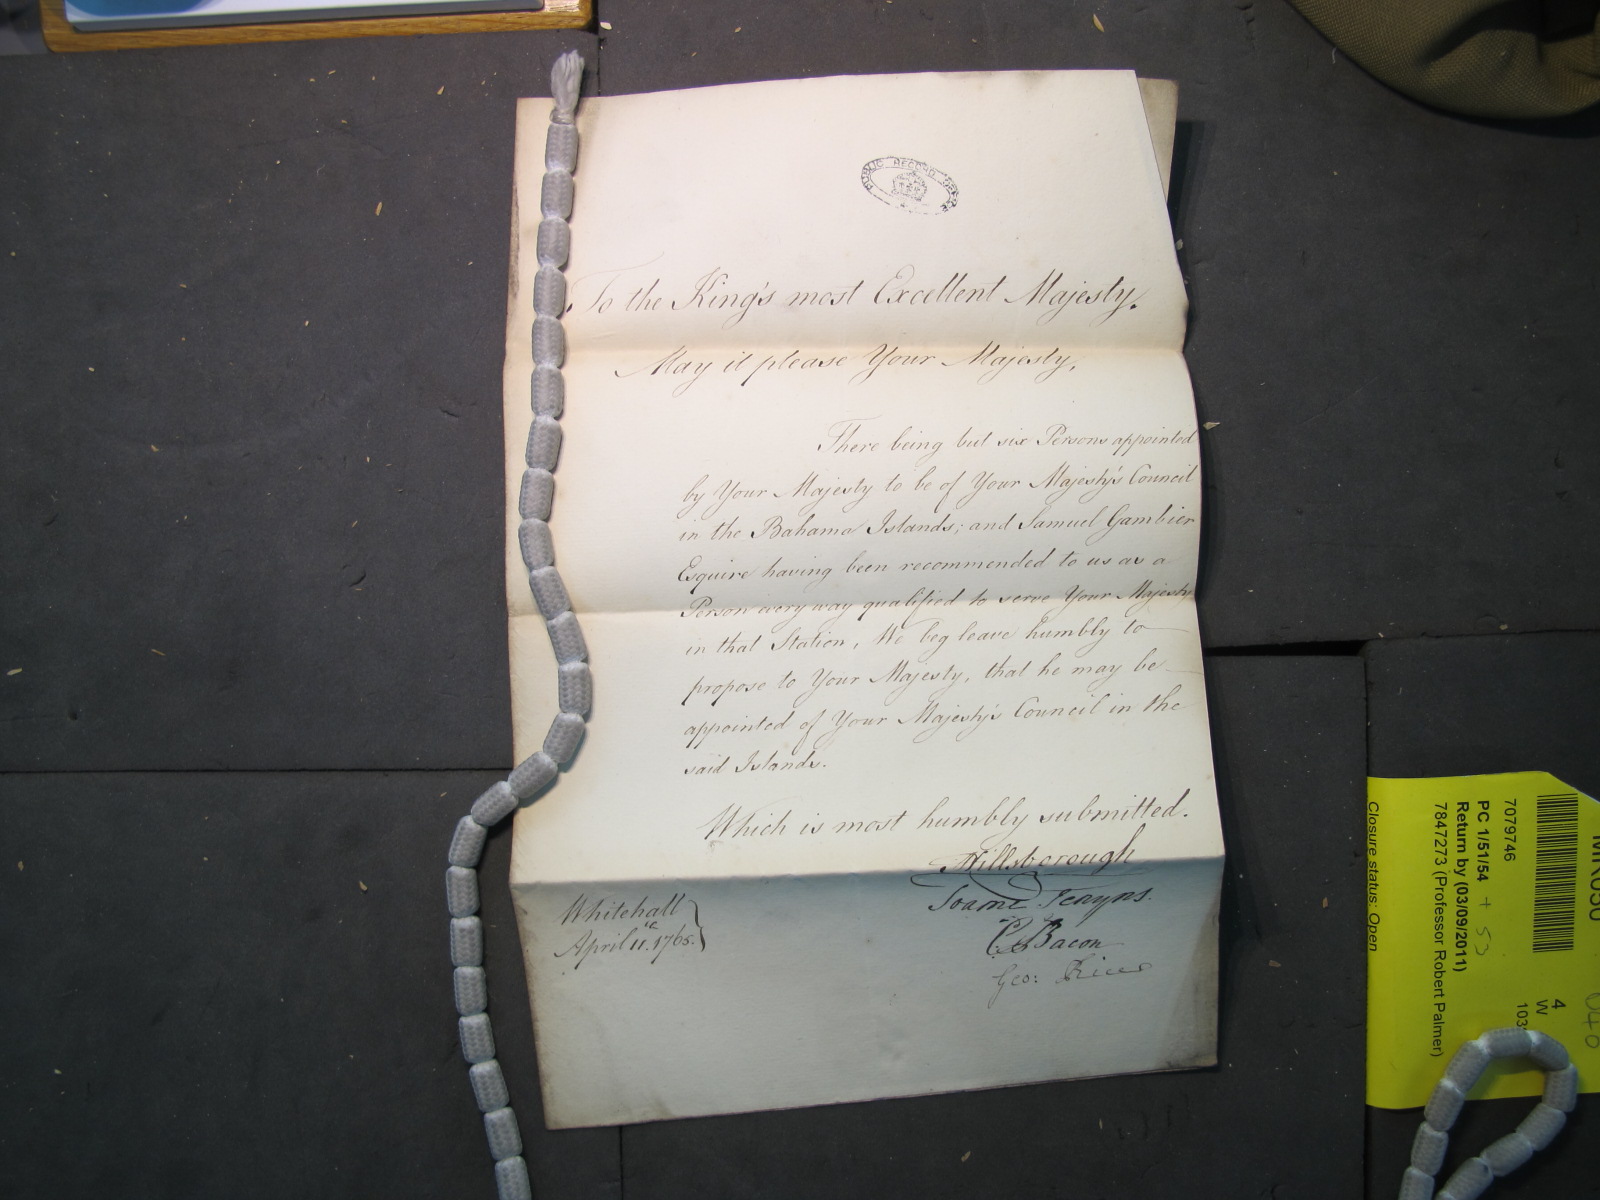 PUBLIC RECORD OFFICE
To the King's most Excellent Majesty.
May it please Your Majesty,
There being but six Persons appointed
by Your Majesty to be of Your Majesty's Council
in the Bahama Islands; and Samuel Gambier
Esquire having been recommended to us as a
Person every way qualified to serve Your Majesty
in that Station, We beg leave humbly to
propose to Your Majesty, that he may be
appointed of Your Majesty's Council in the
said Islands.
Which is most humbly submitted.
Hillsborough
Soame Jenyns.
Bacon
Geo: Rice
Whitehall
April 11. 1765.
7079746
PC 1/51/54 + 53
Return by (03/09/2011)
7847273 (Professor Robert Palmer)
Closure status: Open
4
W
103